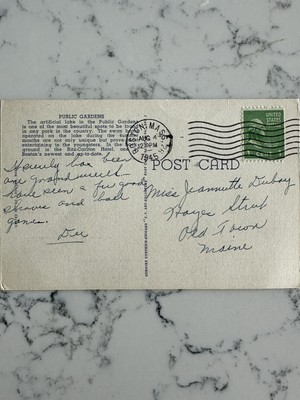 PUBLIC GARDENS
The artificial lake in the Public Gardens
is one of the most beautiful spots to be
in any park in the country. The swan
during the
months are not only unique but prove
entertaining to the youngsters. In the
ground is the Ritz-Carlton Hotel, one
Boston's newest and up-to-date.
BOSTON, MASS.
AUG
12 30 PM
1945
UNITED
STATES
POST CARD
has been
one grand week.
Have seen a few good
shows and ball
games.
Dee
Miss Jeannette Dubay
Hayes Street
Old Town
Maine